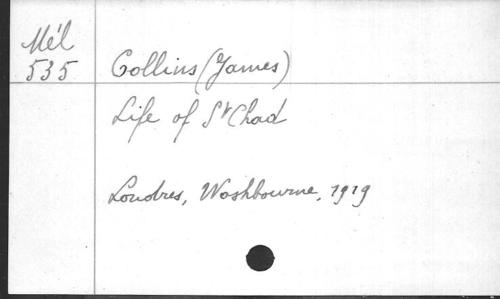 Mél
535
Collins (James)
Life of St Chad
Londres, Washbourne, 1919